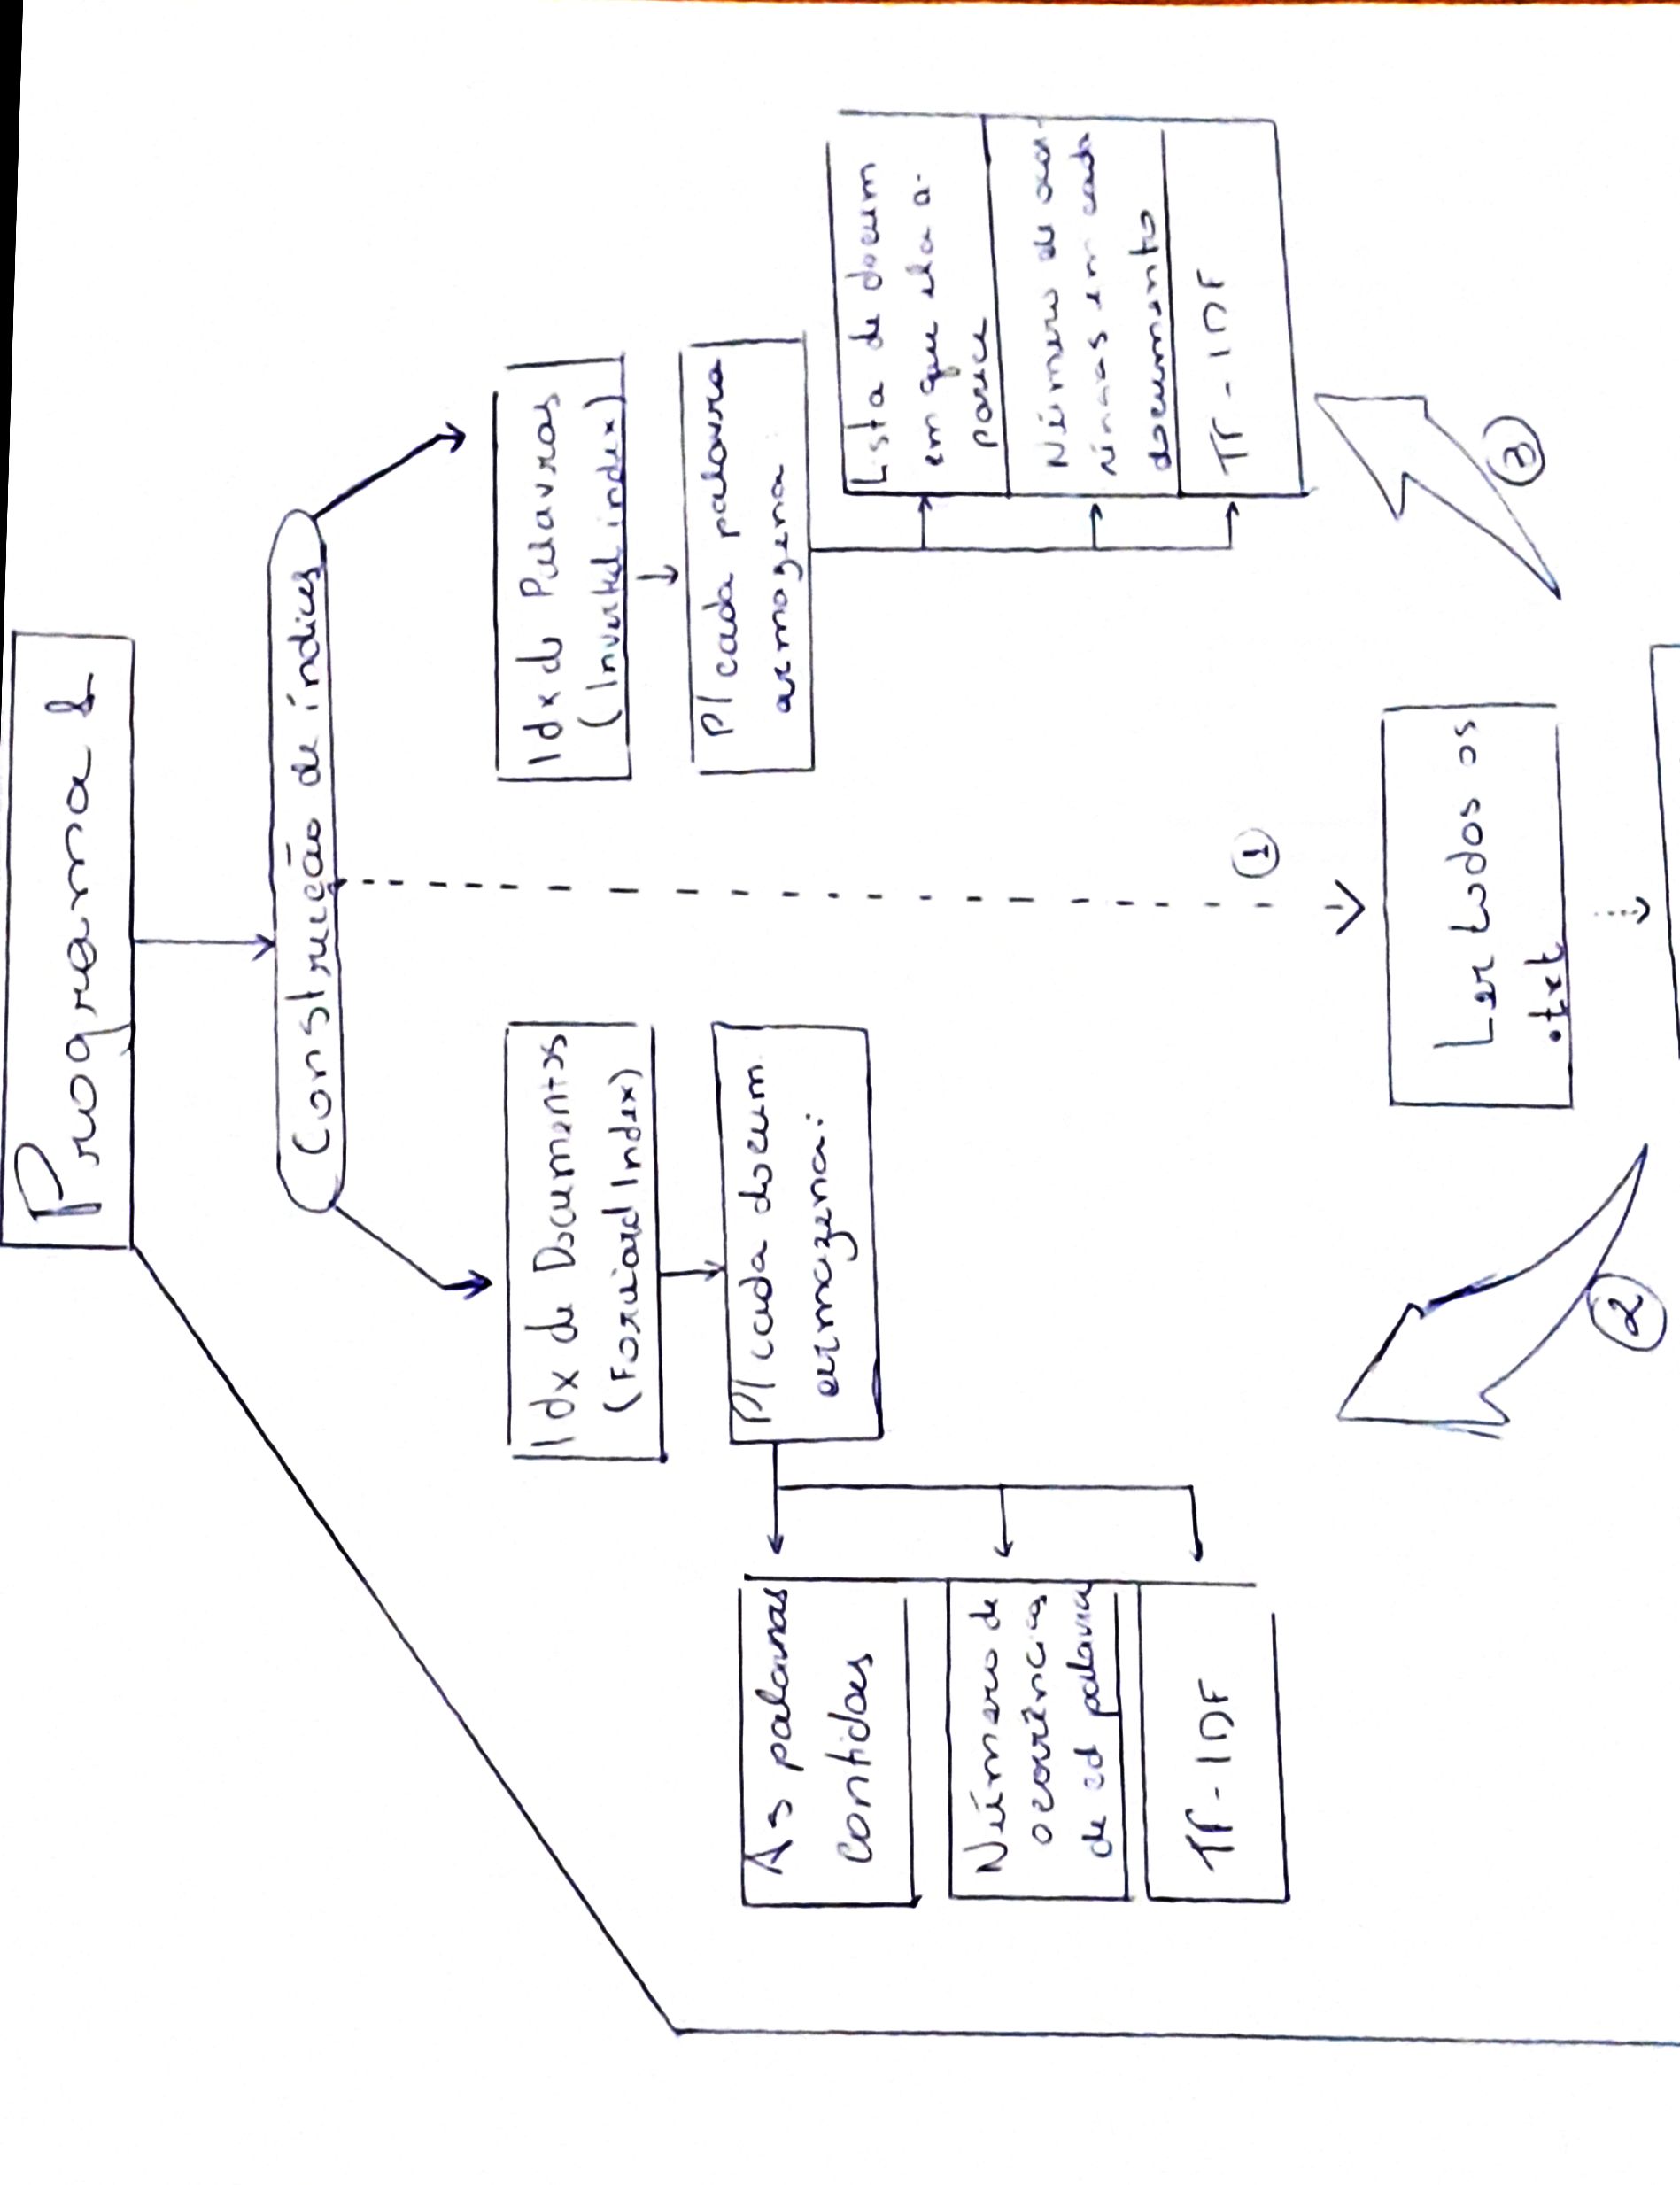 Programa 1
Construção de índices
Idx de Documentos
(Forward Index)
P/ cada docum
armazena:
As palavras
contidas
Número de
ocorrências
de cd palavra
TF-IDF
Idx de Palavras
(Inverted index)
P/ cada palavra
armazena
Lista de docum
em que ela a-
parece
Número de
em cada
documento
TF-IDF
1
Ler todos os
.txt
2
3